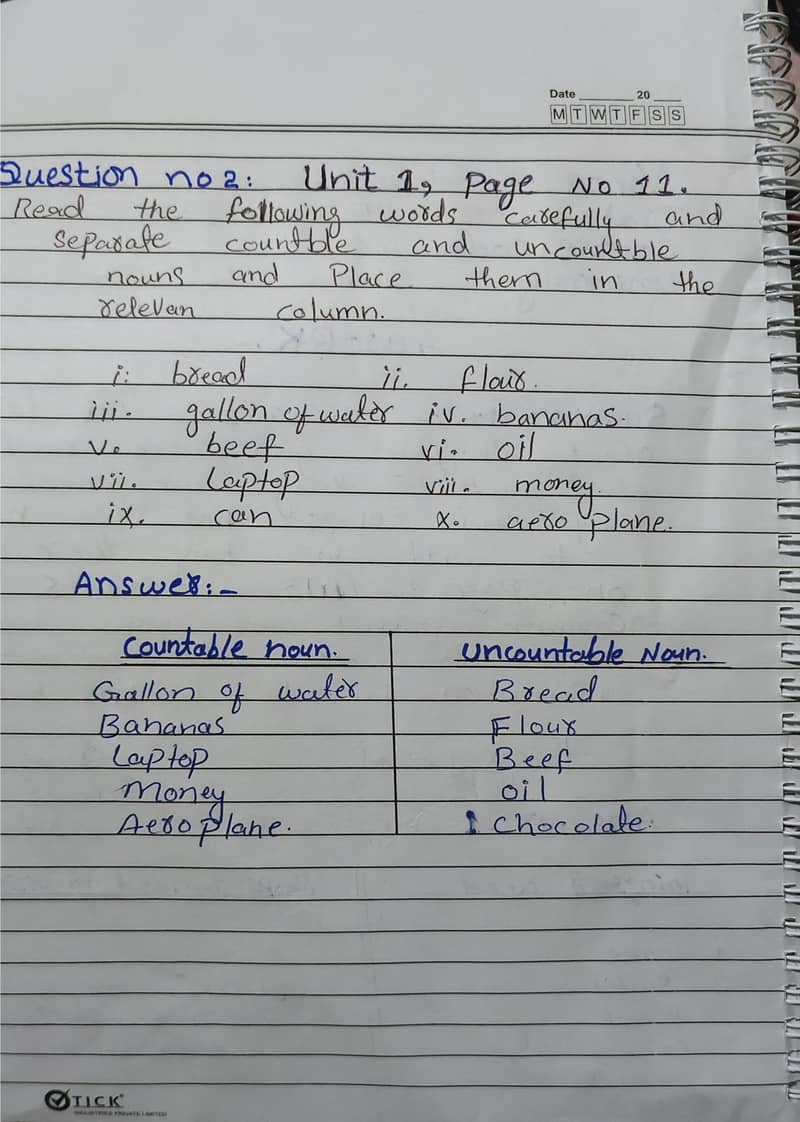 Date ________ 20 ____
M T W T F S S
Question no 2: Unit 1, Page No 11.
Read the following words carefully and
separate countble and uncountble
nouns and Place them in the
relevan column.
i: bread ii. flour.
iii. gallon of water iv. bananas.
v. beef vi. oil
vii. Laptop viii. money.
ix. can x. aero plane.
Answer:-
Countable noun. Uncountable Noun.
Gallon of water Bread
Bananas Flour
Laptop Beef
Money oil
Aero plane. Chocolate.
TICK
INDUSTRIES PRIVATE LIMITED